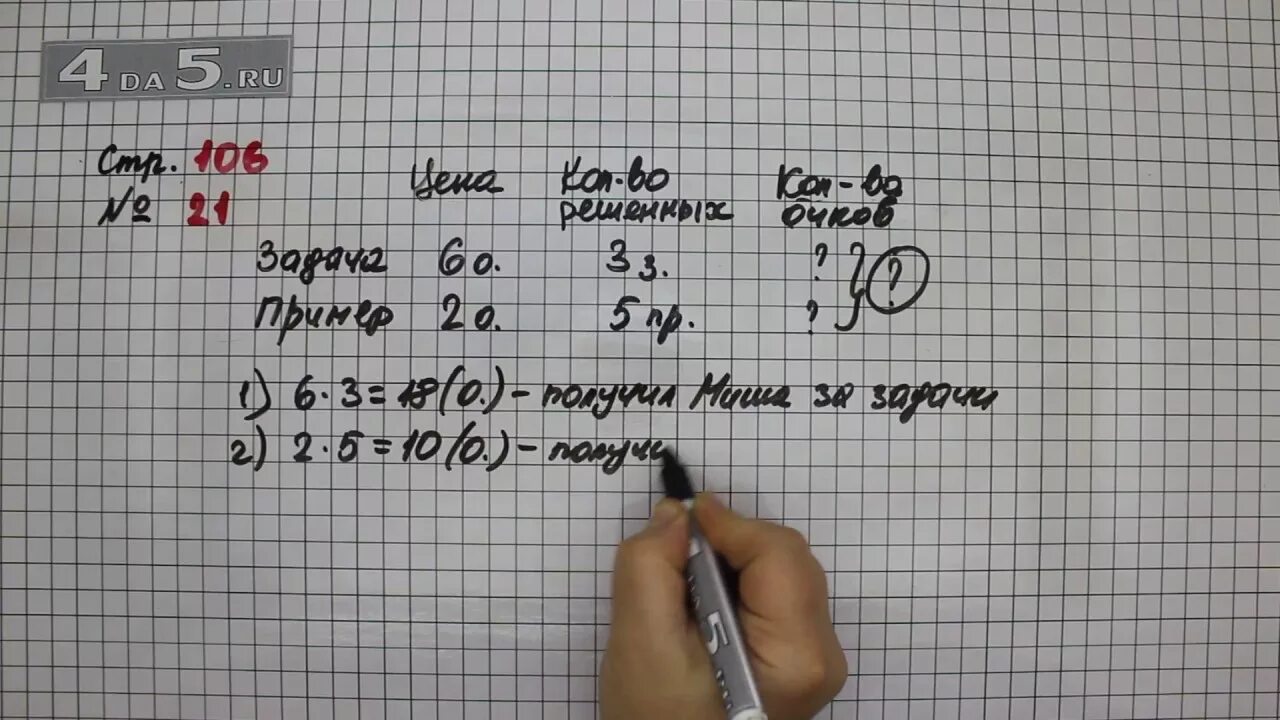 4 DA 5.RU
Стр. 106
№ 21
Цена Кол-во решенных Кол-во очков
Задача 6 о. 3 з. ? } ?
Пример 2 о. 5 пр. ?
1) 6 · 3 = 18 (о.) - получил Миша за задачи
2) 2 · 5 = 10 (о.) - получи
5